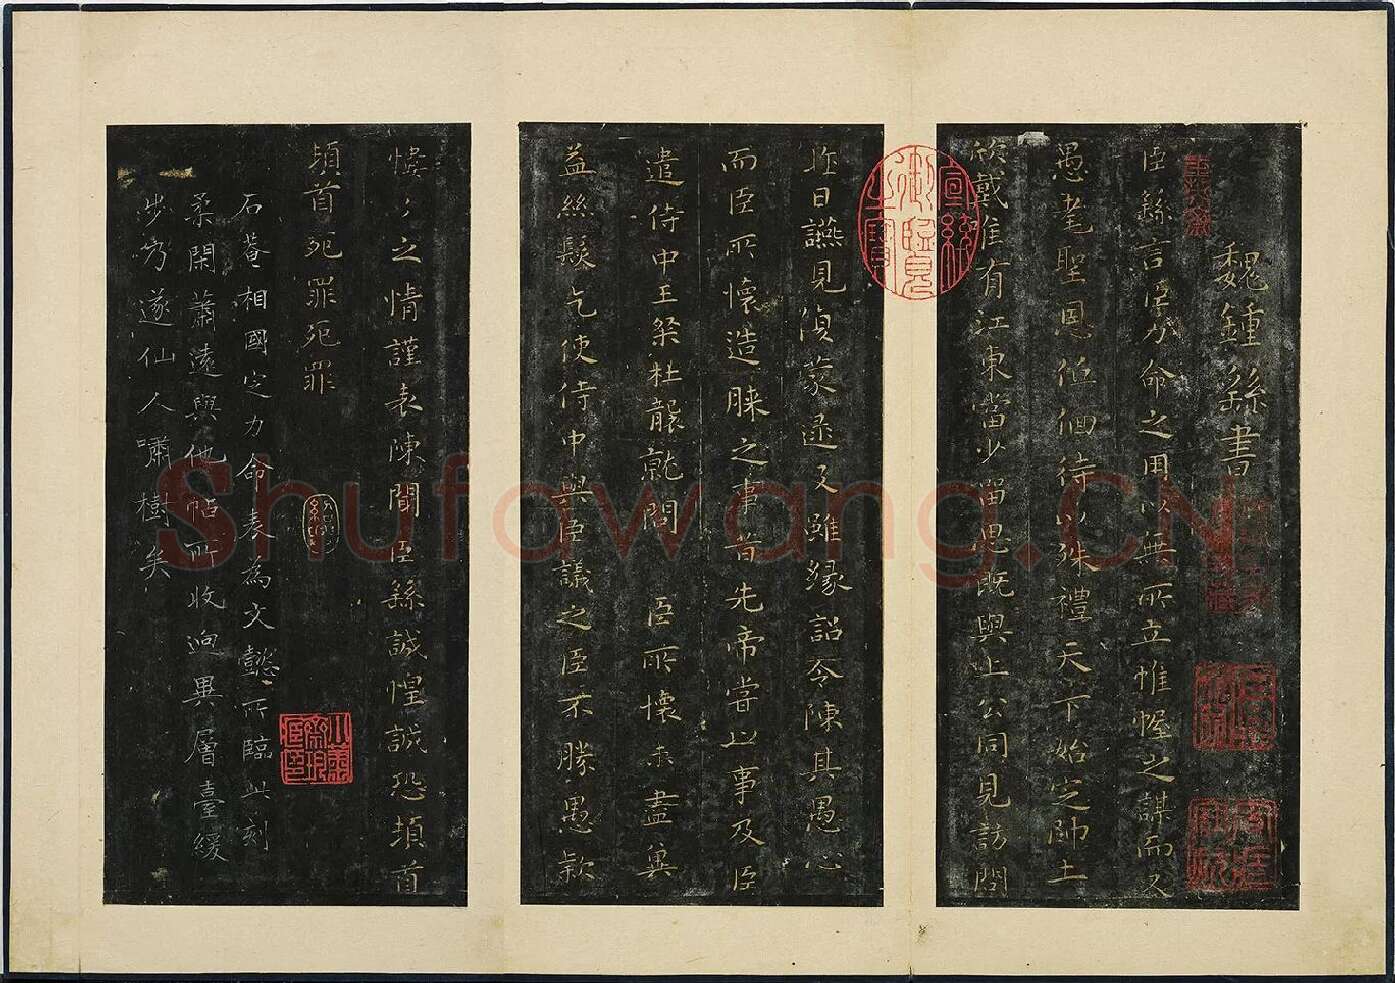 魏鍾繇書
臣繇言臣力命之用以無所立帷幄之謀而又
愚耄聖恩低佪待以殊禮天下始定帥土
欣戴唯有江東當少留思既與上公同見訪問
昨日讌見復蒙逮及雖緣詔令陳其愚心
而臣所懷造膝之事昔先帝嘗以事及臣
遣侍中王粲杜襲就問臣所懷未盡冀
益絲髮乞使侍中與臣議之臣不勝愚款
慺々之情謹表陳聞臣繇誠惶誠恐頓首
頓首死罪死罪
石菴相國定力命表為文懿所臨此刻
柔閑蕭遠與他帖所收迥異層臺緩
步方遂仙人嘯樹矣
宣統御覽之寶
Shufawang.CN